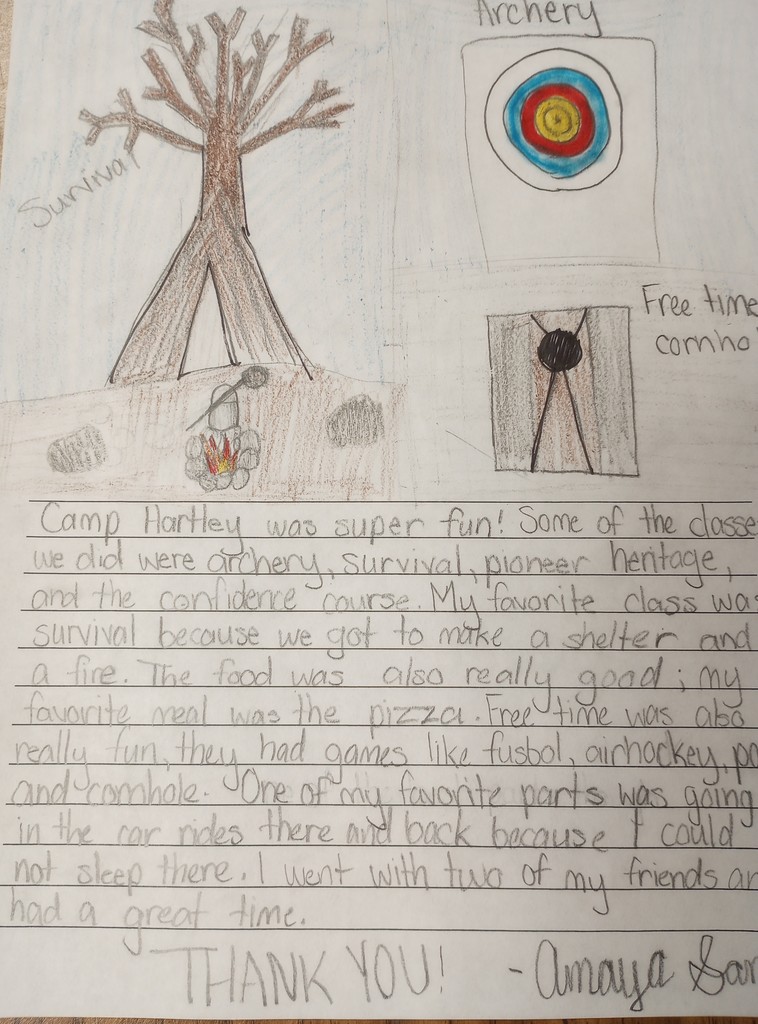 Archery
Survival
Free time
Camp Hartley was super fun! Some of the classe
we did were archery, survival, pioneer heritage,
and the confidence course. My favorite class was
survival because we got to make a shelter and
a fire. The food was also really good; my
favorite meal was the pizza. Free time was also
really fun, they had games like fusbol, airhockey, po
and cornhole. One of my favorite parts was going
in the car rides there and back because I could
not sleep there. I went with two of my friends an
had a great time.
THANK YOU! - Amaya